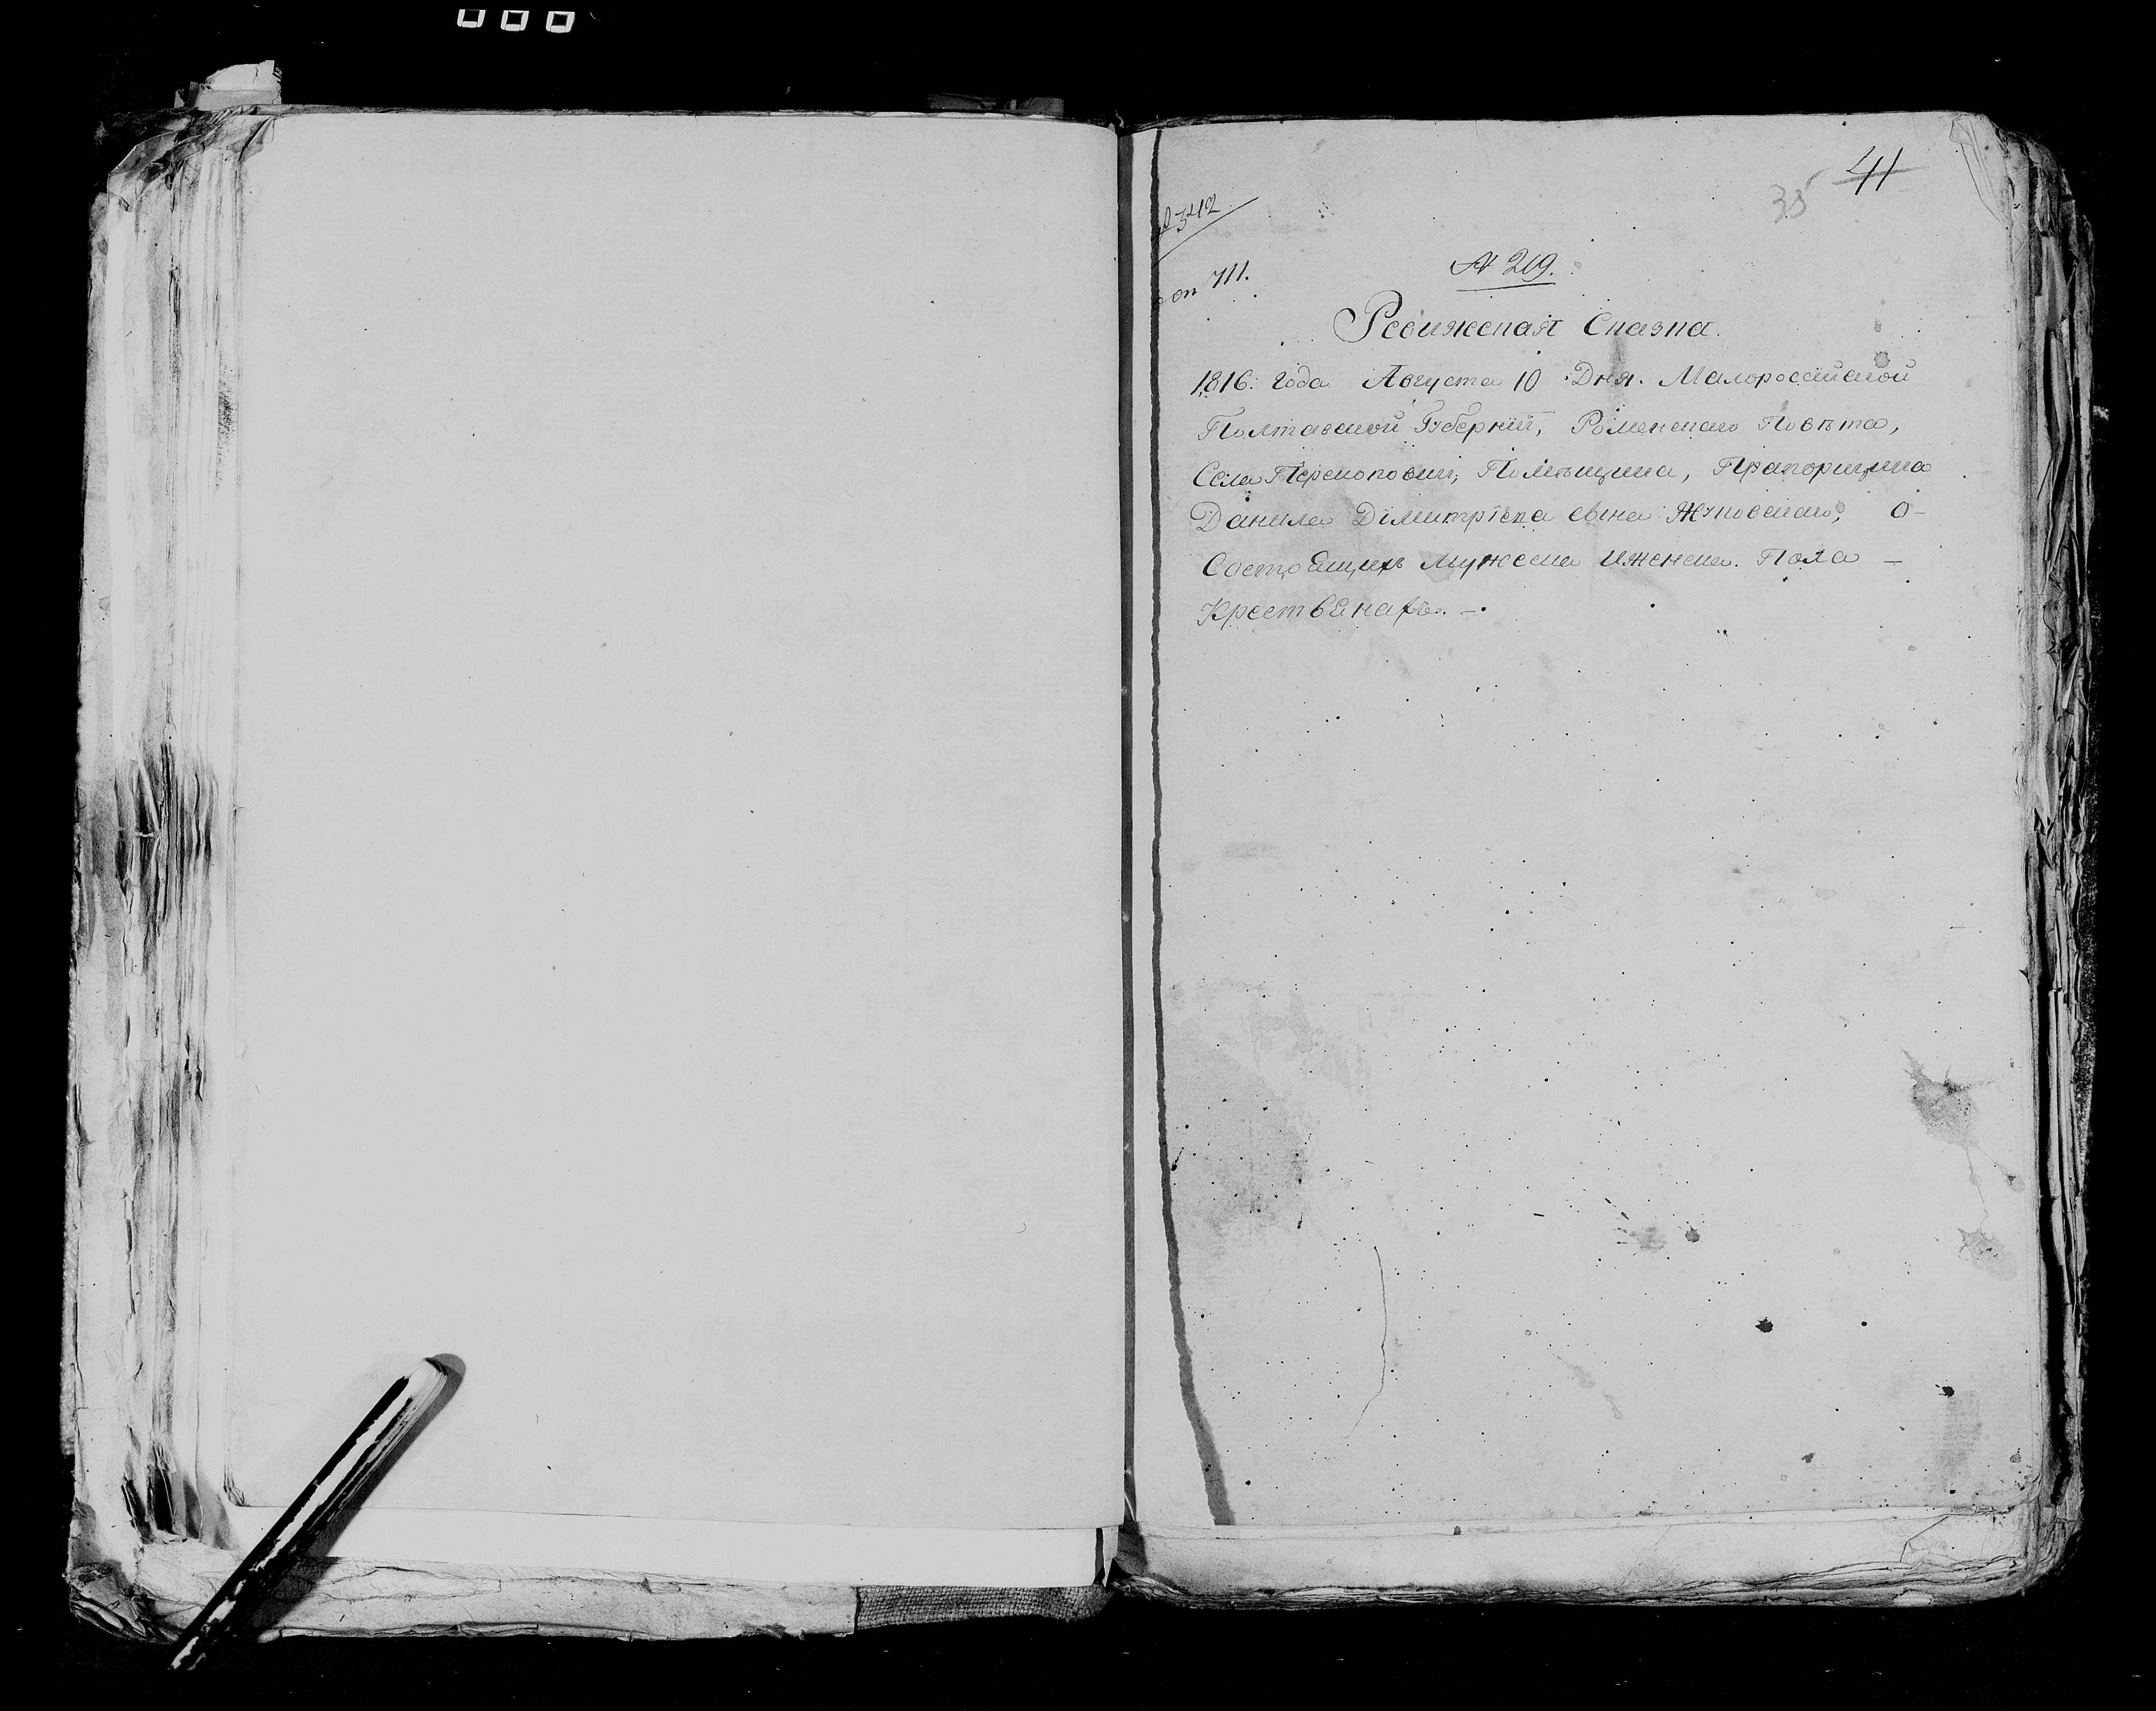 41
35
№ 342
по оп 711.
№ 219.
Ревижская Сказка.
1816: года Августа 10 Дня. Малороссійской
Полтавской Губерніи, Роменскаго Повѣта,
Села Перекоповки, Помѣщика, Прапорщика
Данила Дімитріева сына Жуковскаго, о-
Состоящихъ мужеска и женска. Пола —
Крестьянахъ. —